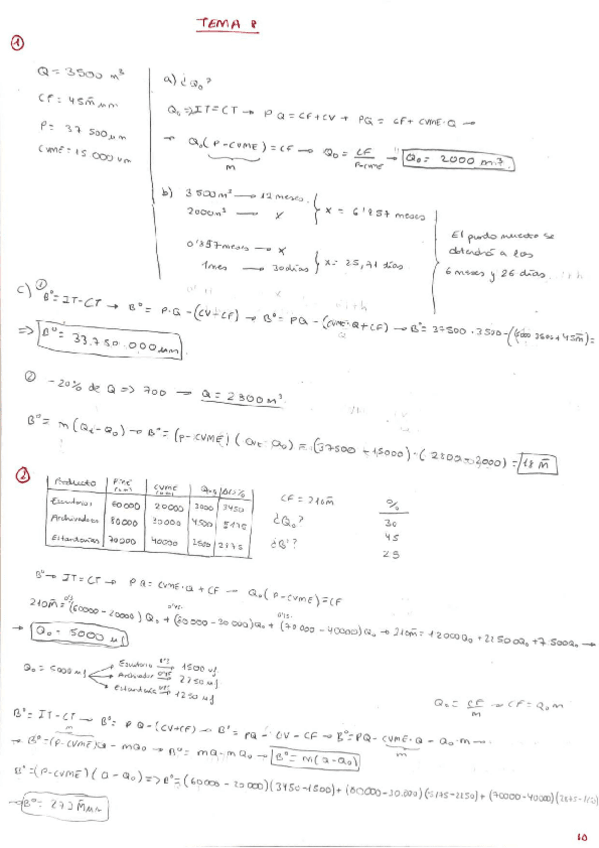 TEMA 8
①
Q = 3500 m³
CF = 45 m̄ um
P = 37 500 um
CVME = 15 000 um
a) ¿Q₀?
Q₀ => IT = CT → PQ = CF + CV → PQ = CF + CVME·Q →
→ Q₀(P-CVME) = CF → Q₀ = CF/P-CVME → Q₀ = 2000 m³.
m
b) 3500 m³ → 12 meses
2000 m³ → x
x = 6'857 meses
0'857 meses → x
1 mes → 30 días
x = 25,71 días
El punto muerto se
obtendrá a los
6 meses y 26 días.
c) ① Bº = IT - CT → Bº = P·Q - (CV+CF) → Bº = PQ - (CVME·Q + CF) → Bº = 37500 · 3500 - (15000·3500 + 45m̄) =
=> Bº = 33.750.000 um
② -20% de Q => 700 → Q = 2800 m³
Bº = m(Q₁-Q₀) → Bº = (P-CVME)(Q₁-Q₀) = (37500-15000)·(2800-2000) = 18 m̄
②
Producto CVME
Escritorios 60000 20000 3000 3450
Archivadores 80000 30000 4500 5175
Estanterías 70000 40000 2500 2875
CF = 210 m̄
¿Q₀?
¿Bº?
%
30
45
25
Bº → IT = CT → PQ = CVME·Q + CF → Q₀(P-CVME) = CF
210 m̄ = (60000-20000) Q₀ + (80000-30000) Q₀ + (70000-40000) Q₀ → 210 m̄ = 12000Q₀ + 22500Q₀ + 7500Q₀ →
→ Q₀ = 5000 uf
Q₀ = 5000 uf
Escritorio 0'3 → 1500 uf
Archivador 0'45 → 2250 uf
Estantería → 1250 uf
Q₀ = CF/m → CF = Q₀ m
Bº = IT - CT → Bº = PQ - (CV+CF) → Bº = PQ - CV - CF → Bº = PQ - CVME·Q - Q₀·m →
→ Bº = (P-CVME)Q - mQ₀ → Bº = mQ - mQ₀ → Bº = m(Q-Q₀)
m
Bº = (P-CVME)(Q-Q₀) => Bº = (60000-20000)(3450-1500) + (80000-30.000)(5175-2250) + (70000-40000)(2875-1250)
→ Bº = 273 m̄ um
10